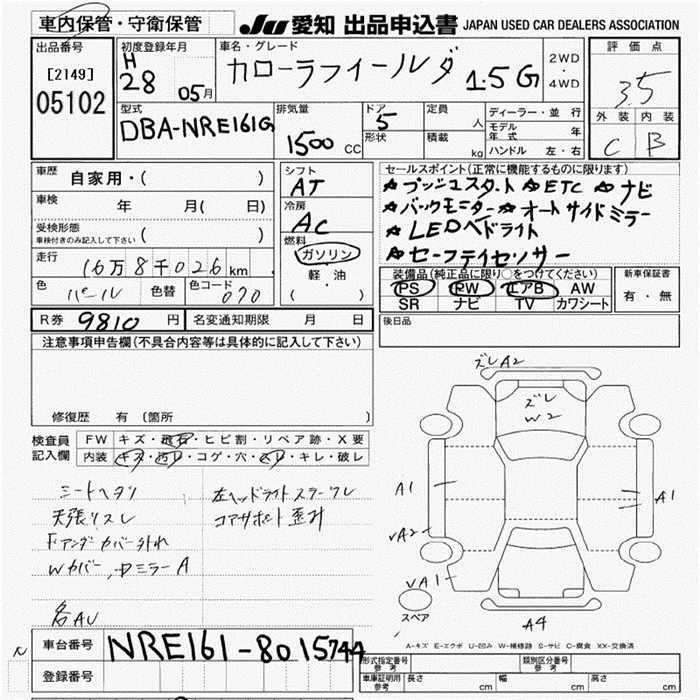 車内保管・守衛保管
JU 愛知 出品申込書 JAPAN USED CAR DEALERS ASSOCIATION
出品番号
[2149]
05102
初度登録年月
H
28 05月
車名・グレード
カローラフィールダ 1.5G
2WD
・
4WD
評価点
3.5
外装 内装
C B
型式
DBA-NRE161G
排気量
1500 CC
ドア
5
形状
定員
人
積載
kg
ディーラー・並行
モデル年式 年
ハンドル 左・右
車歴
自家用・( )
車検 年 月( 日)
受検形態
車検付きのみ記入して下さい ( )
走行
16万8千026km
色 パール 色替 色コード 070
シフト
AT
冷房
AC
燃料
ガソリン
軽油
( )
セールスポイント(正常に機能するものに限ります)
☆プッシュスタート ☆ETC ☆ナビ
☆バックモニター ☆オートサイドミラー
☆LEDヘドライト
☆セーフティセンサー
装備品(純正品に限り○をつけてください)
PS PW エアB AW
SR ナビ TV カワシート
新車保証書
有・無
R券 9810 円 名変通知期限 月 日
後日品
注意事項申告欄(不具合内容等は具体的に記入して下さい)
修復歴 有 (箇所
検査員記入欄
FW キズ・飛石・ヒビ割・リペア跡・X要
内装 キズ・汚レ・コゲ・穴・スレ・キレ・破レ
シートヘタリ
天張リスレ
Fアンダカバー外れ
Wカバー,Dミラー A
名AU
左ヘッドライトステーワレ
コアサポート歪ミ
ズレ A2
ズレ
W2
A1
A1
VA2
VA1
スペア
A4
A-キズ E-エクボ U-凹み W-補修跡 S-サビ C-腐食 XX-交換済
車台番号 NRE161-8015744
登録番号
N
形式指定番号 参考
類別区分番号 参考
車庫証明用 参考 長さ cm 幅 cm 高さ cm